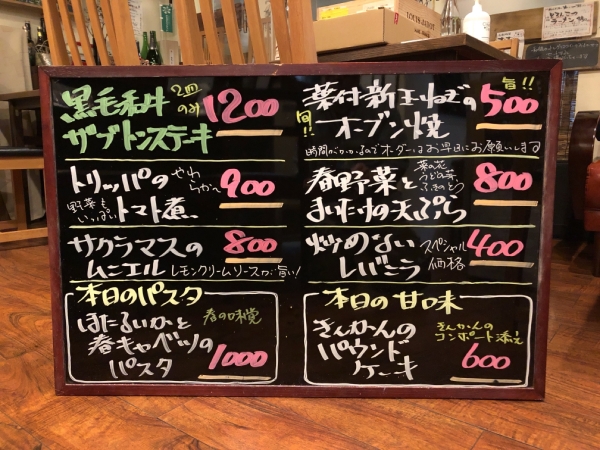 黒毛和牛 2皿のみ 1200
ザブトンステーキ
トリッパの やわらか〜 900
野菜もいっぱい トマト煮
サクラマスの 800
ムニエル レモンクリームソースが旨い!
本日のパスタ
ほたるいかと 春の味覚
春キャベツの
パスタ 1000
葉付新玉ねぎの 旨!! 500
旬!! オーブン焼
時間がかかるのでオーダーはお早目にお願いします
春野菜と 菜の花、うどの芽、ふきのとう 800
まいたけの天ぷら
炒めない スペシャル価格 400
レバニラ
本日の甘味
きんかんの きんかんのコンポート添え
パウンド
ケーキ 600